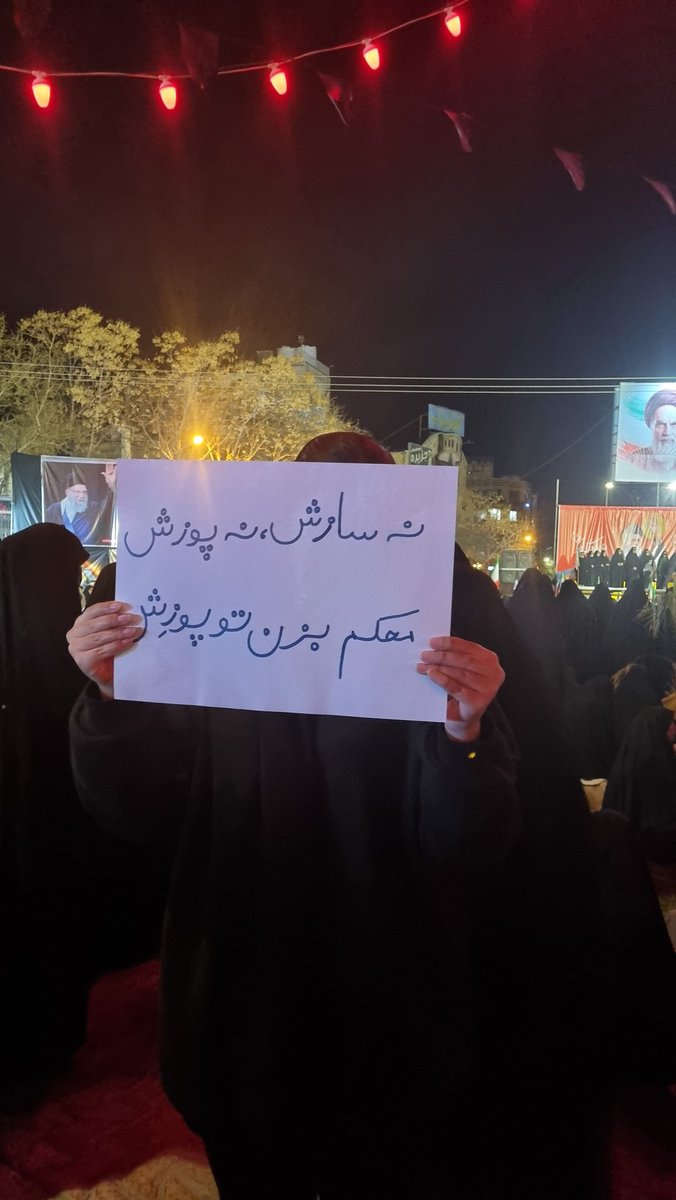 نه سازش، نه پوزش
محکم بزن تو پوزِش
جزیره